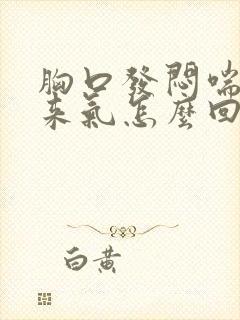 胸口發悶喘
來氣怎麼回
白黃